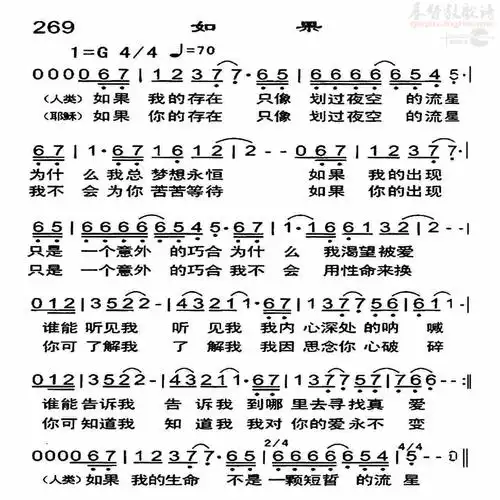 269 如 果
基督教歌谱
1=G 4/4 ♩=70
0000 67 | 12377· 65 | 66666 654 5·
(人类) 如果 我的存在 只像 划过夜空 的流星
(耶稣) 如果 你的存在 只像 划过夜空 的流星
67 | 1·67 1612 | 2--67 | 12377·
为什 么我总 梦想永恒 如果 我的出现
我不 会为你 苦苦等待 如果 你的出现
65 | 66666542·67 | 1·166132 | 2--
只是 一个意外 的巧合为什 么 我渴望被爱
只是 一个意外 的巧合我不 会 用性命来换
012 | 3522-243211·67 | 13775661 |
谁能 听见我 听见我 我内 心深处 的呐 喊
你可 了解我 了解我 我因 思念你 心破 碎
012 | 3522-243211·67 | 13775717766-- :||
谁能 告诉我 告诉我 到哪 里去寻找真 爱
你可 知道我 知道我 我对 你的爱永不 变
0000 67 | 12377· 65 | 2/4 6666 | 66654 5 | 5/4 5--0 ||
(人类) 如果 我的生命 不是 一颗短暂 的流 星